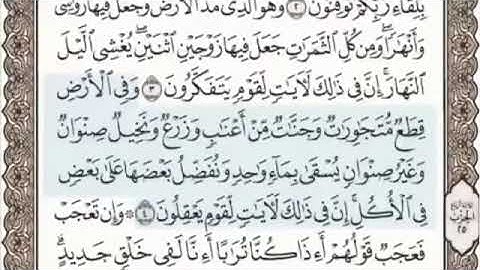 بِلِقَاءِ رَبِّكُمْ تُوقِنُونَ ٢ وَهُوَ الَّذِى مَدَّ الْأَرْضَ وَجَعَلَ فِيهَا رَوَٰسِىَ
وَأَنْهَٰرًا ۖ وَمِن كُلِّ الثَّمَرَٰتِ جَعَلَ فِيهَا زَوْجَيْنِ اثْنَيْنِ ۖ يُغْشِى الَّيْلَ
النَّهَارَ ۚ إِنَّ فِى ذَٰلِكَ لَآيَٰتٍ لِّقَوْمٍ يَتَفَكَّرُونَ ٣ وَفِى الْأَرْضِ
قِطَعٌ مُّتَجَٰوِرَٰتٌ وَجَنَّٰتٌ مِّنْ أَعْنَٰبٍ وَزَرْعٌ وَنَخِيلٌ صِنْوَانٌ
وَغَيْرُ صِنْوَانٍ يُسْقَىٰ بِمَآءٍ وَٰحِدٍ وَنُفَضِّلُ بَعْضَهَا عَلَىٰ بَعْضٍ
فِى الْأُكُلِ ۚ إِنَّ فِى ذَٰلِكَ لَآيَٰتٍ لِّقَوْمٍ يَعْقِلُونَ ٤ ۞ وَإِن تَعْجَبْ
فَعَجَبٌ قَوْلُهُمْ أَءِذَا كُنَّا تُرَٰبًا أَءِنَّا لَفِى خَلْقٍ جَدِيدٍ ۗ
الحزب
٢٥